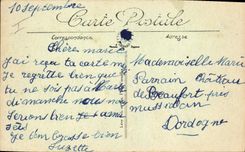 10 Septembre
Carte Postale
Correspondance
Adresse
Chère marie
J'ai reçu ta carte
Je regrette bien que
tu ne sois pas
dimanche nous
serions bien
Je t'embrasse bien
Suzette
Mademoiselle Marie
Château
de Beaufort près
mussidan
Dordogne